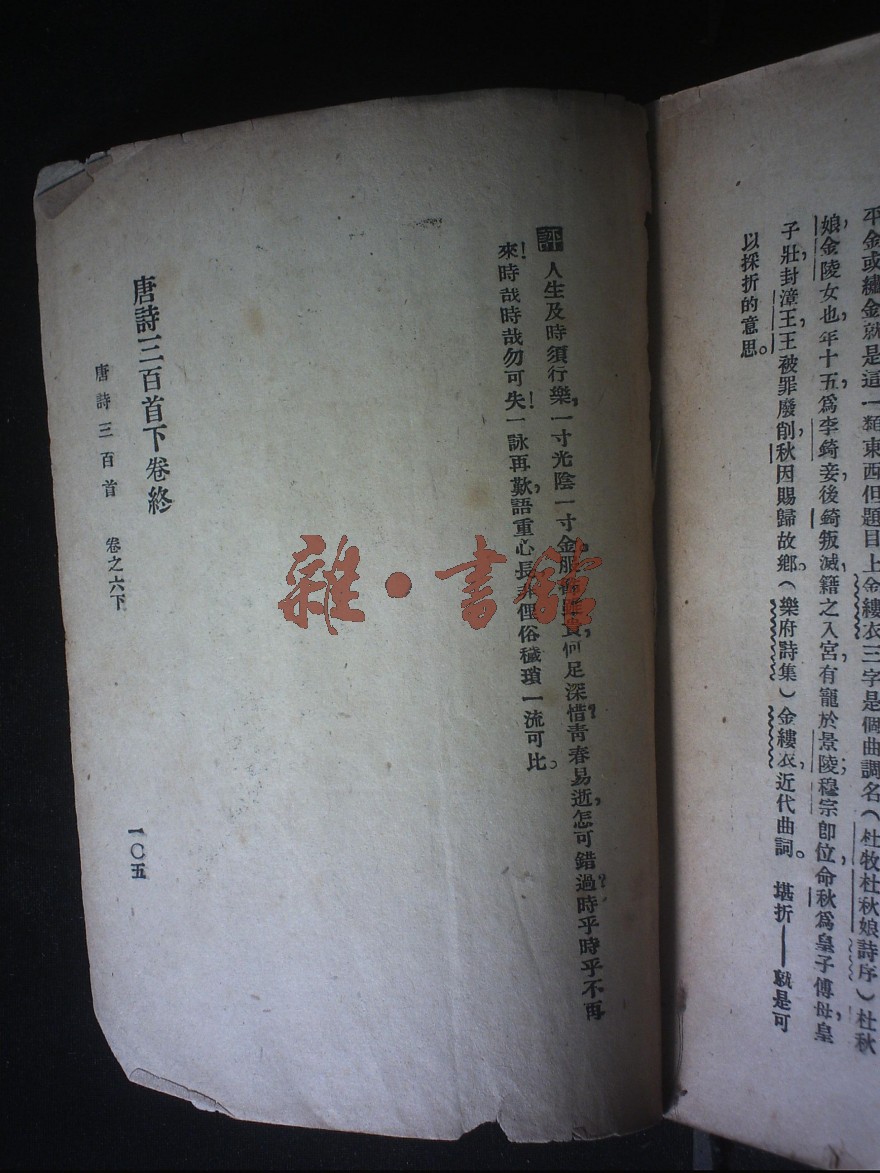 平金或繡金就是這一類東西但題目上金縷衣三字是個曲調名(杜牧杜秋娘詩序)杜秋
娘,金陵女也,年十五,爲李錡妾,後錡叛滅,籍之入宮,有寵於景陵;穆宗即位,命秋爲皇子傅母,皇
子壯,封漳王,王被罪廢削,秋因賜歸故鄉。(樂府詩集)金縷衣,近代曲詞。 堪折——就是可
以採折的意思。
評 人生及時須行樂,一寸光陰一寸金,服何足深惜?青春易逝,怎可錯過?時乎時乎不再
來!時哉時哉勿可失!一詠再歎,語重心長,俚俗穢瑣一流可比。
唐詩三百首下卷終
唐詩三百首 卷之六下
一〇五
雜·書館